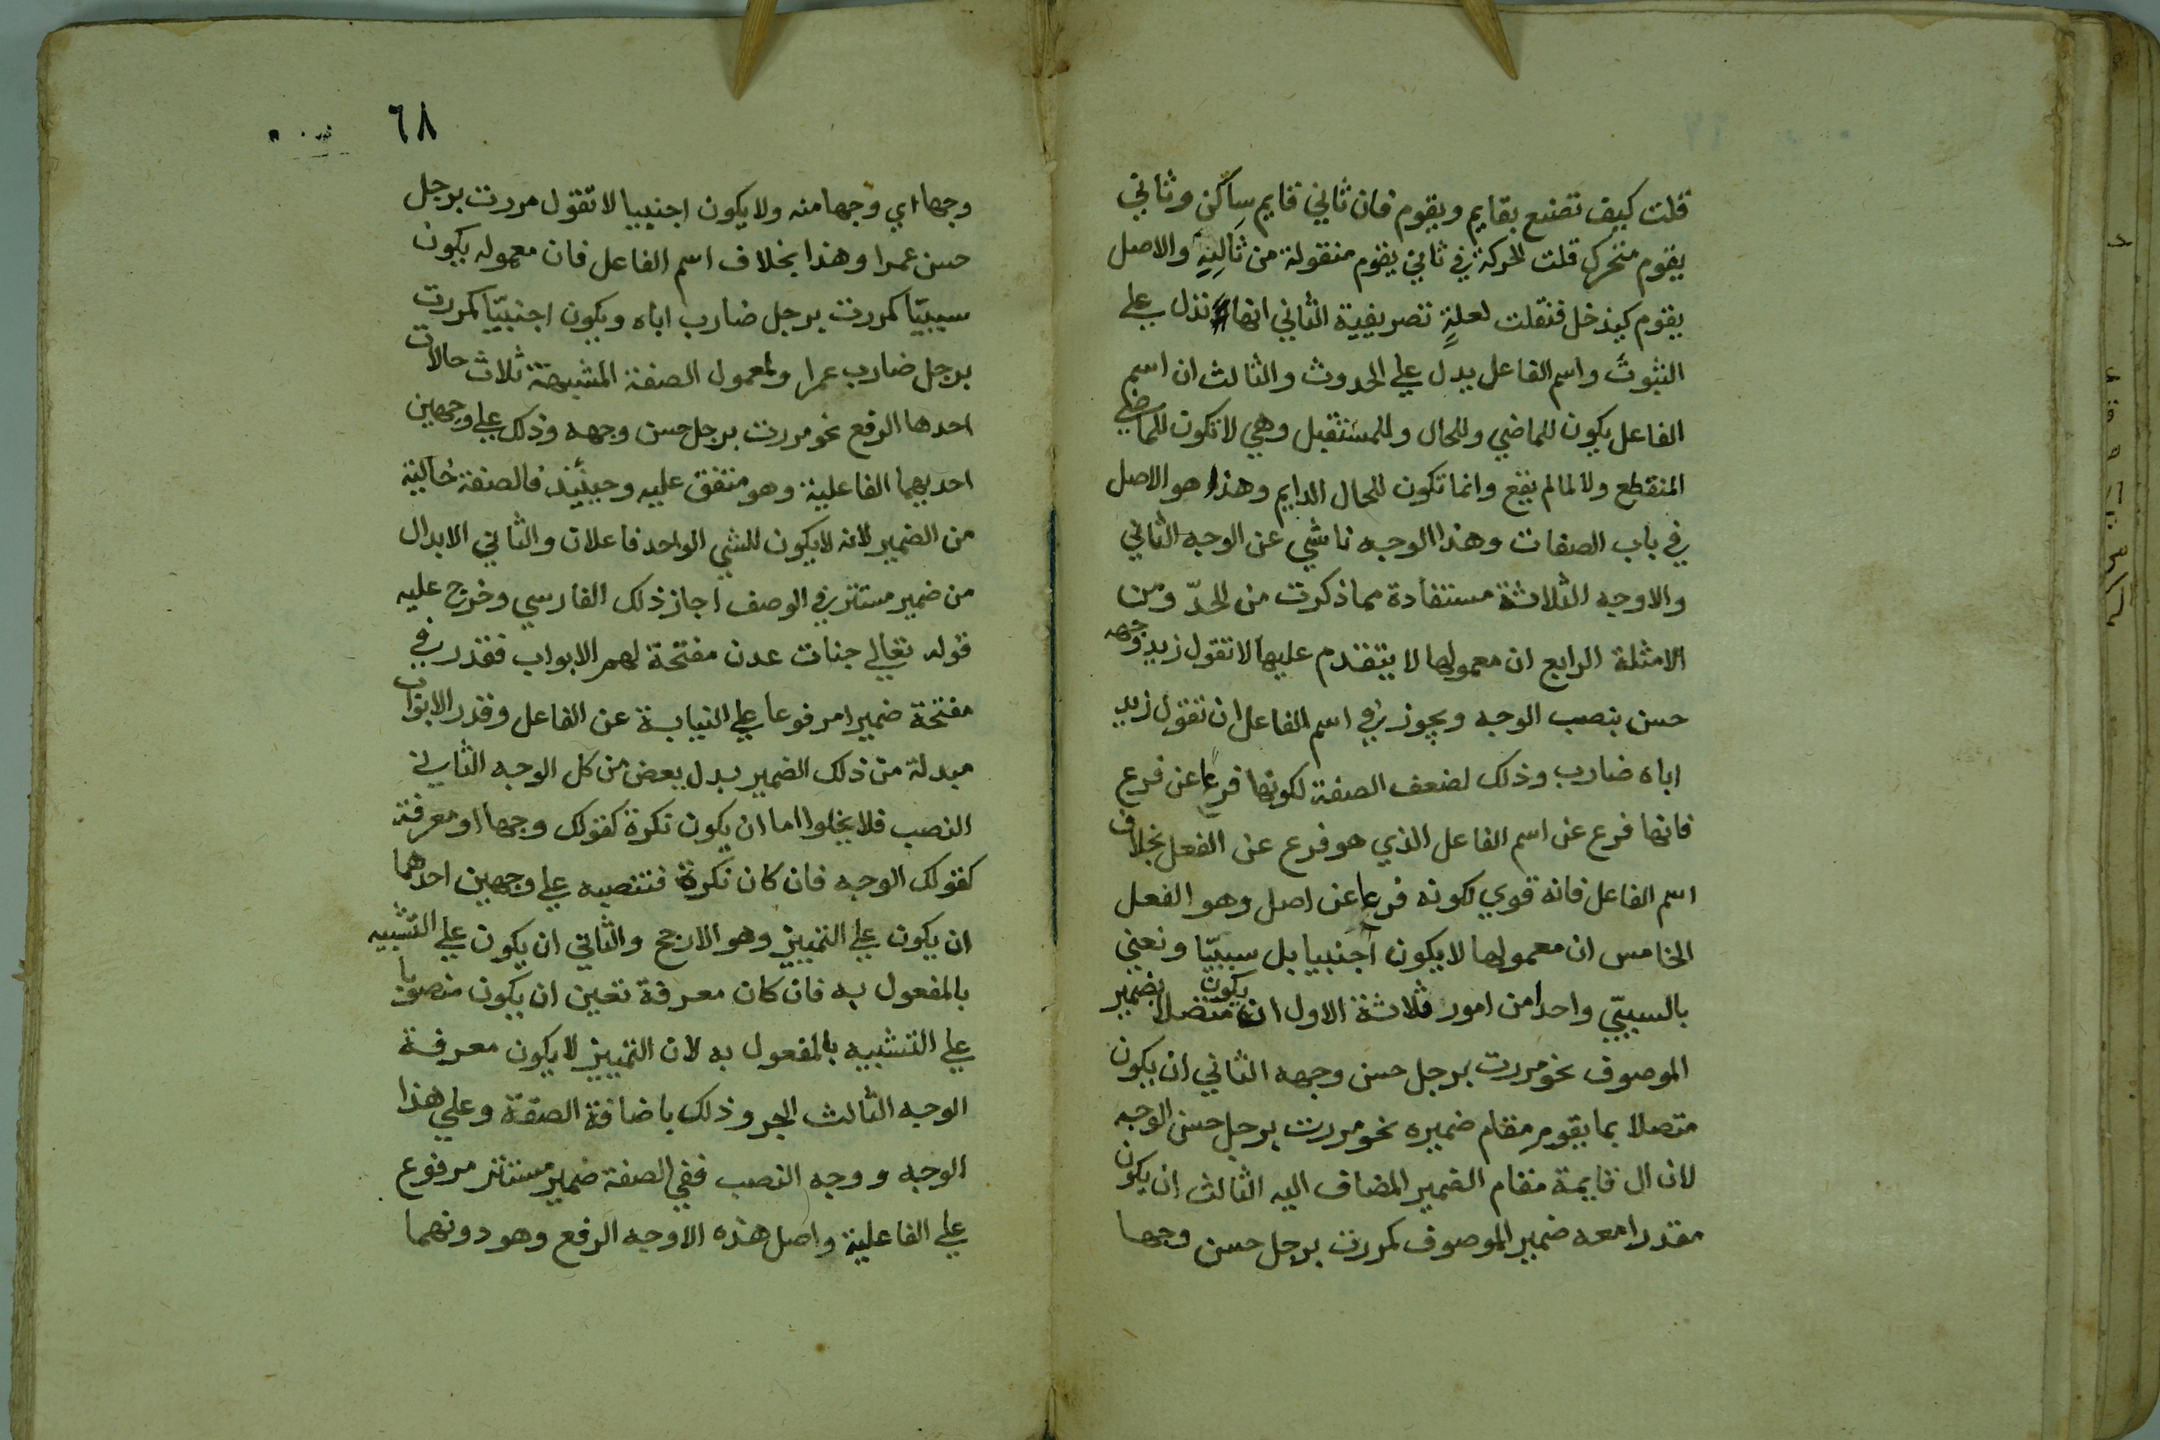 قلت كيف تصنع بقايم ويقوم فان ثاني قايم ساكن وثاني
يقوم متحرك قلت الحركة في ثاني يقوم منقولة من ثالثه والاصل
يقوم كيدخل فنقلت لعلةٍ تصريفية الثاني انها تدل علي
الثبوت واسم الفاعل يدل علي الحدوث والثالث ان اسم
الفاعل يكون للماضي وللحال وللمستقبل وهي لا تكون للماضي
المنقطع ولا لما لم يقع وانما تكون للحال الدايم وهذا هو الاصل
في باب الصفات وهذا الوجه ناشي عن الوجه الثاني
والاوجه الثلاثة مستفادة مما ذكرت من الحدّ ومن
الامثلة الرابع ان معمولها لا يتقدم عليها لا تقول زيد وجهه
حسن بنصب الوجه ويجوز في اسم الفاعل ان تقول زيد
اباه ضارب وذلك لضعف الصفة لكونها فرعا عن فرع
فانها فرع عن اسم الفاعل الذي هو فرع عن الفعل بخلاف
اسم الفاعل فانه قوي لكونه فرعا عن اصل وهو الفعل
الخامس ان معمولها لا يكون اجنبيا بل سببيّا ونعني
بالسببيّ واحدا من امور ثلاثة الاول ان يكون متصلا بضمير
الموصوف نحو مررت برجل حسن وجهه الثاني ان يكون
متصلا بما يقوم مقام ضميره نحو مررت برجل حسن الوجه
لان ال قايمة مقام الضمير المضاف اليه الثالث ان يكون
مقدرا معه ضمير الموصوف كمررت برجل حسن وجها
٦٨
وجها اي وجها منه ولا يكون اجنبيا لا تقول مررت برجل
حسن عمرا وهذا بخلاف اسم الفاعل فان معموله يكون
سببيّا كمررت برجل ضارب اباه ويكون اجنبيّا كمررت
برجل ضارب عمرا ولمعمول الصفة المشبهة ثلاث حالات
احدها الرفع نحو مررت برجل حسن وجهه وذلك علي وجهين
احديهما الفاعلية وهو متفق عليه وحينئذ فالصفة خالية
من الضمير لانه لا يكون للشي الواحد فاعلان والثاني الابدال
من ضمير مستتر في الوصف اجاز ذلك الفارسي وخرج عليه
قوله تعالي جنات عدن مفتحة لهم الابواب فقدر في
مفتحة ضميرا مرفوعا علي النيابة عن الفاعل وقدر الابواب
مبدلة من ذلك الضمير بدل بعض من كل الوجه الثاني
النصب فلا يخلوا اما ان يكون نكرة كقولك وجها او معرفة
كقولك الوجه فان كان نكرة فتنصبه علي وجهين احدهما
ان يكون علي التمييز وهو الارجح والثاني ان يكون علي التشبيه
بالمفعول به فان كان معرفة تعين ان يكون منصوبا
علي التشبيه بالمفعول به لان التمييز لا يكون معرفة
الوجه الثالث الجر وذلك باضافة الصفة وعلي هذا
الوجه ووجه النصب ففي الصفة ضمير مستتر مرفوع
علي الفاعلية واصل هذه الاوجه الرفع وهو دونهما